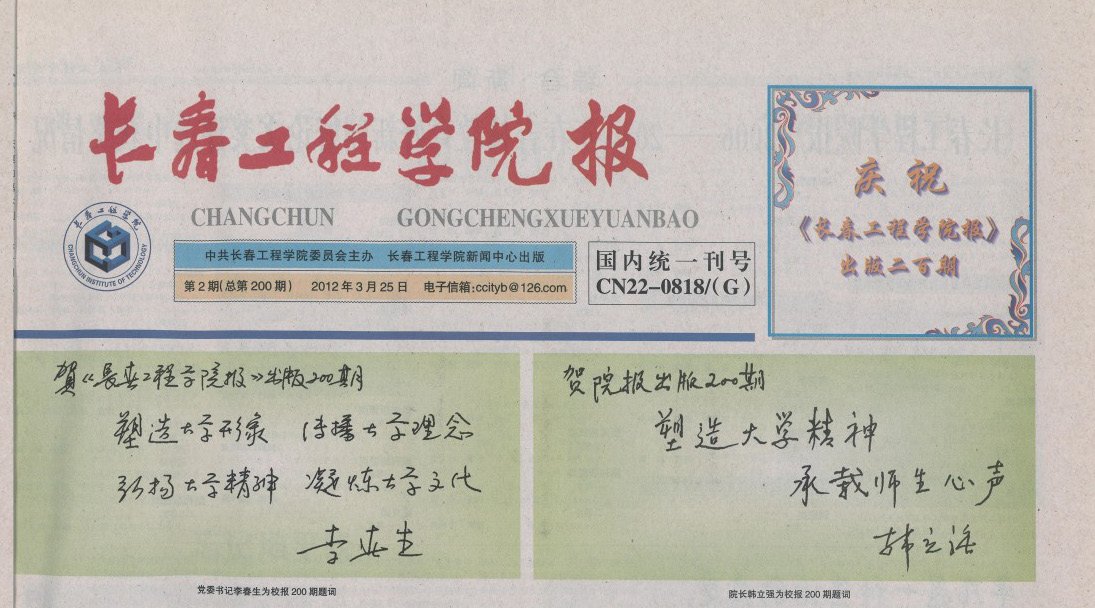 长春工程学院报
CHANGCHUN GONGCHENGXUEYUANBAO
长春工程学院
CHANGCHUN INSTITUTE OF TECHNOLOGY
中共长春工程学院委员会主办 长春工程学院新闻中心出版
第2期(总第200期) 2012年3月25日 电子信箱:ccityb@126.com
国内统一刊号
CN22-0818/(G)
庆祝
《长春工程学院报》
出版二百期
賀《長春工程学院报》出版200期
塑造大学形象 传播大学理念
弘扬大学精神 凝炼大学文化
李春生
党委书记李春生为校报200期题词
贺院报出版200期
塑造大学精神
承载师生心声
韩立强
院长韩立强为校报200期题词